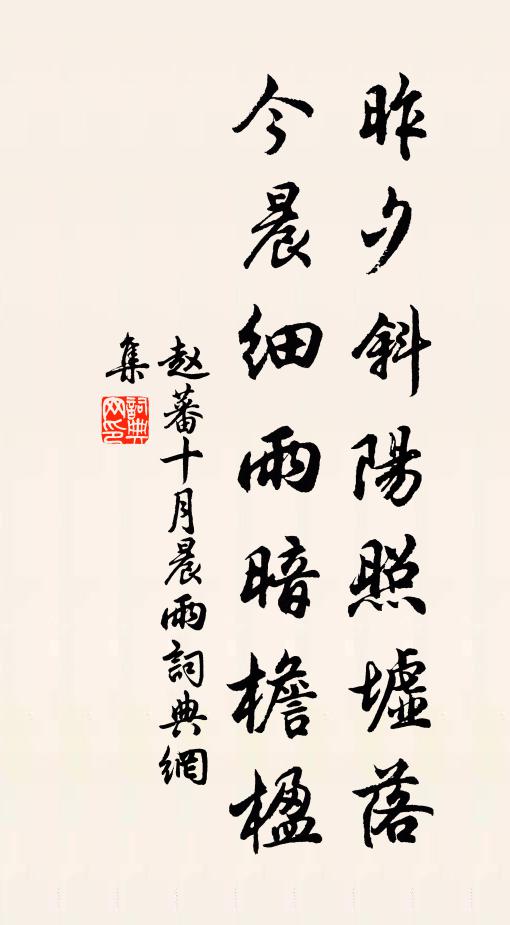 昨夕斜陽照墟落
今晨細雨暗檐楹
赵蕃十月晨雨詞典網
集
詞典
网印